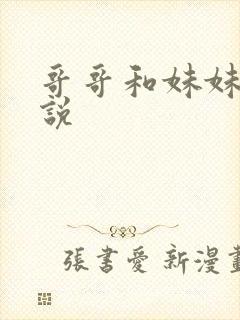 哥哥和妹妹
說
張書愛 新漫畫